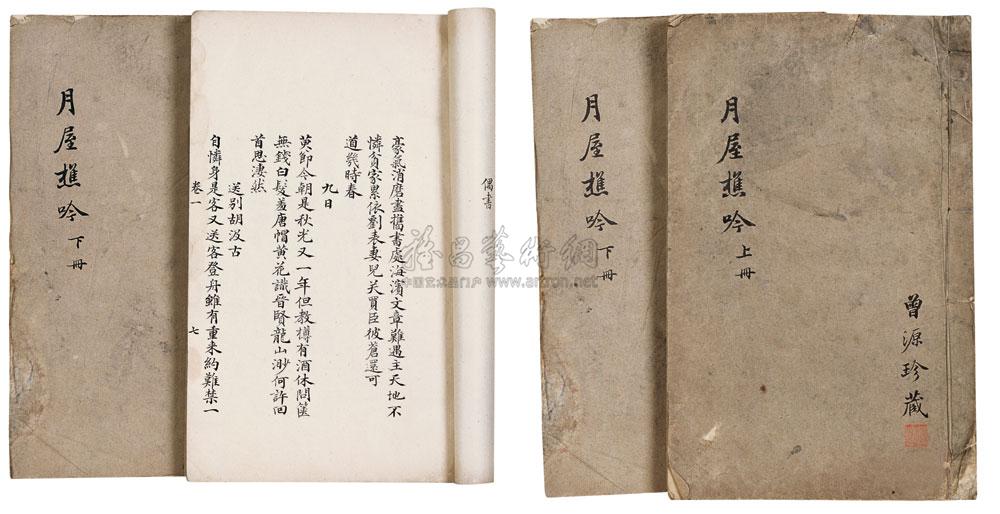 月屋樵吟 下冊
偶書
豪氣消磨盡攜書處海濱文章難遇主天地不
憐貧家累依劉表妻兒笑買臣彼蒼還可
道幾時春
九日
萸節今朝是秋光又一年但教樽有酒休問篋
無錢白髮羞唐帽黃花識晉賢龍山渺何許回
首思淒然
送別胡汲古
自憐身是客又送客登舟雖有重來約難禁一
卷一
七
月屋樵吟 下冊
月屋樵吟 上冊
曾源珍藏
雅昌藝術網
中国艺术品门户 www.artron.net